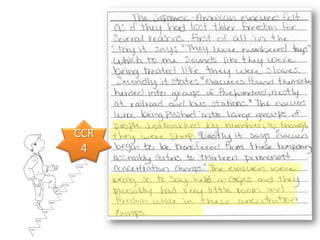 The Japanese-American evacuees felt
as if they had lost their freedom for
several reasons. First of all in the
story it says "They were numbered
which to me sounds like they were
being treated like they were slaves.
Secondly it states "evacuees found themselves
herded into groups of five hundred, mostly
at railroad and bus stations." The evacuees
were being pushed into large groups of
people just marked by numbers as though
they were sheep. Lastly it says "Evacuees
began to be transferred from these temporary
assembly centers to thirteen permanent
concentration camps." The evacuees were
being so to say held in cages and they
probably had very little room and
freedom while in these concentration
camps.
CCR
4